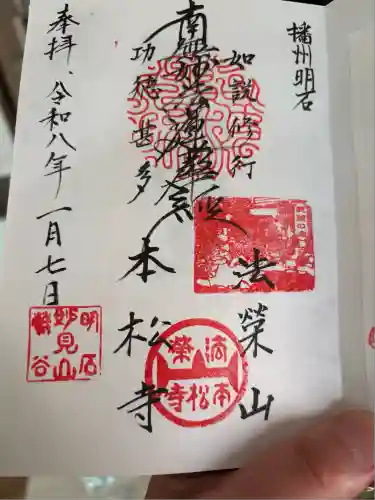 播州明石
如説修行
南無妙法蓮華経
功徳甚多
法榮山
本松寺
奉拝、令和八年一月七日
明石
妙見山
法榮山
本松寺